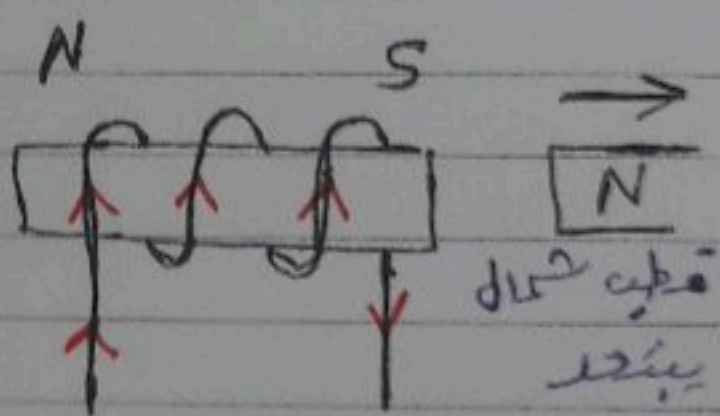 N S
N
قطب شمال
يبتعد